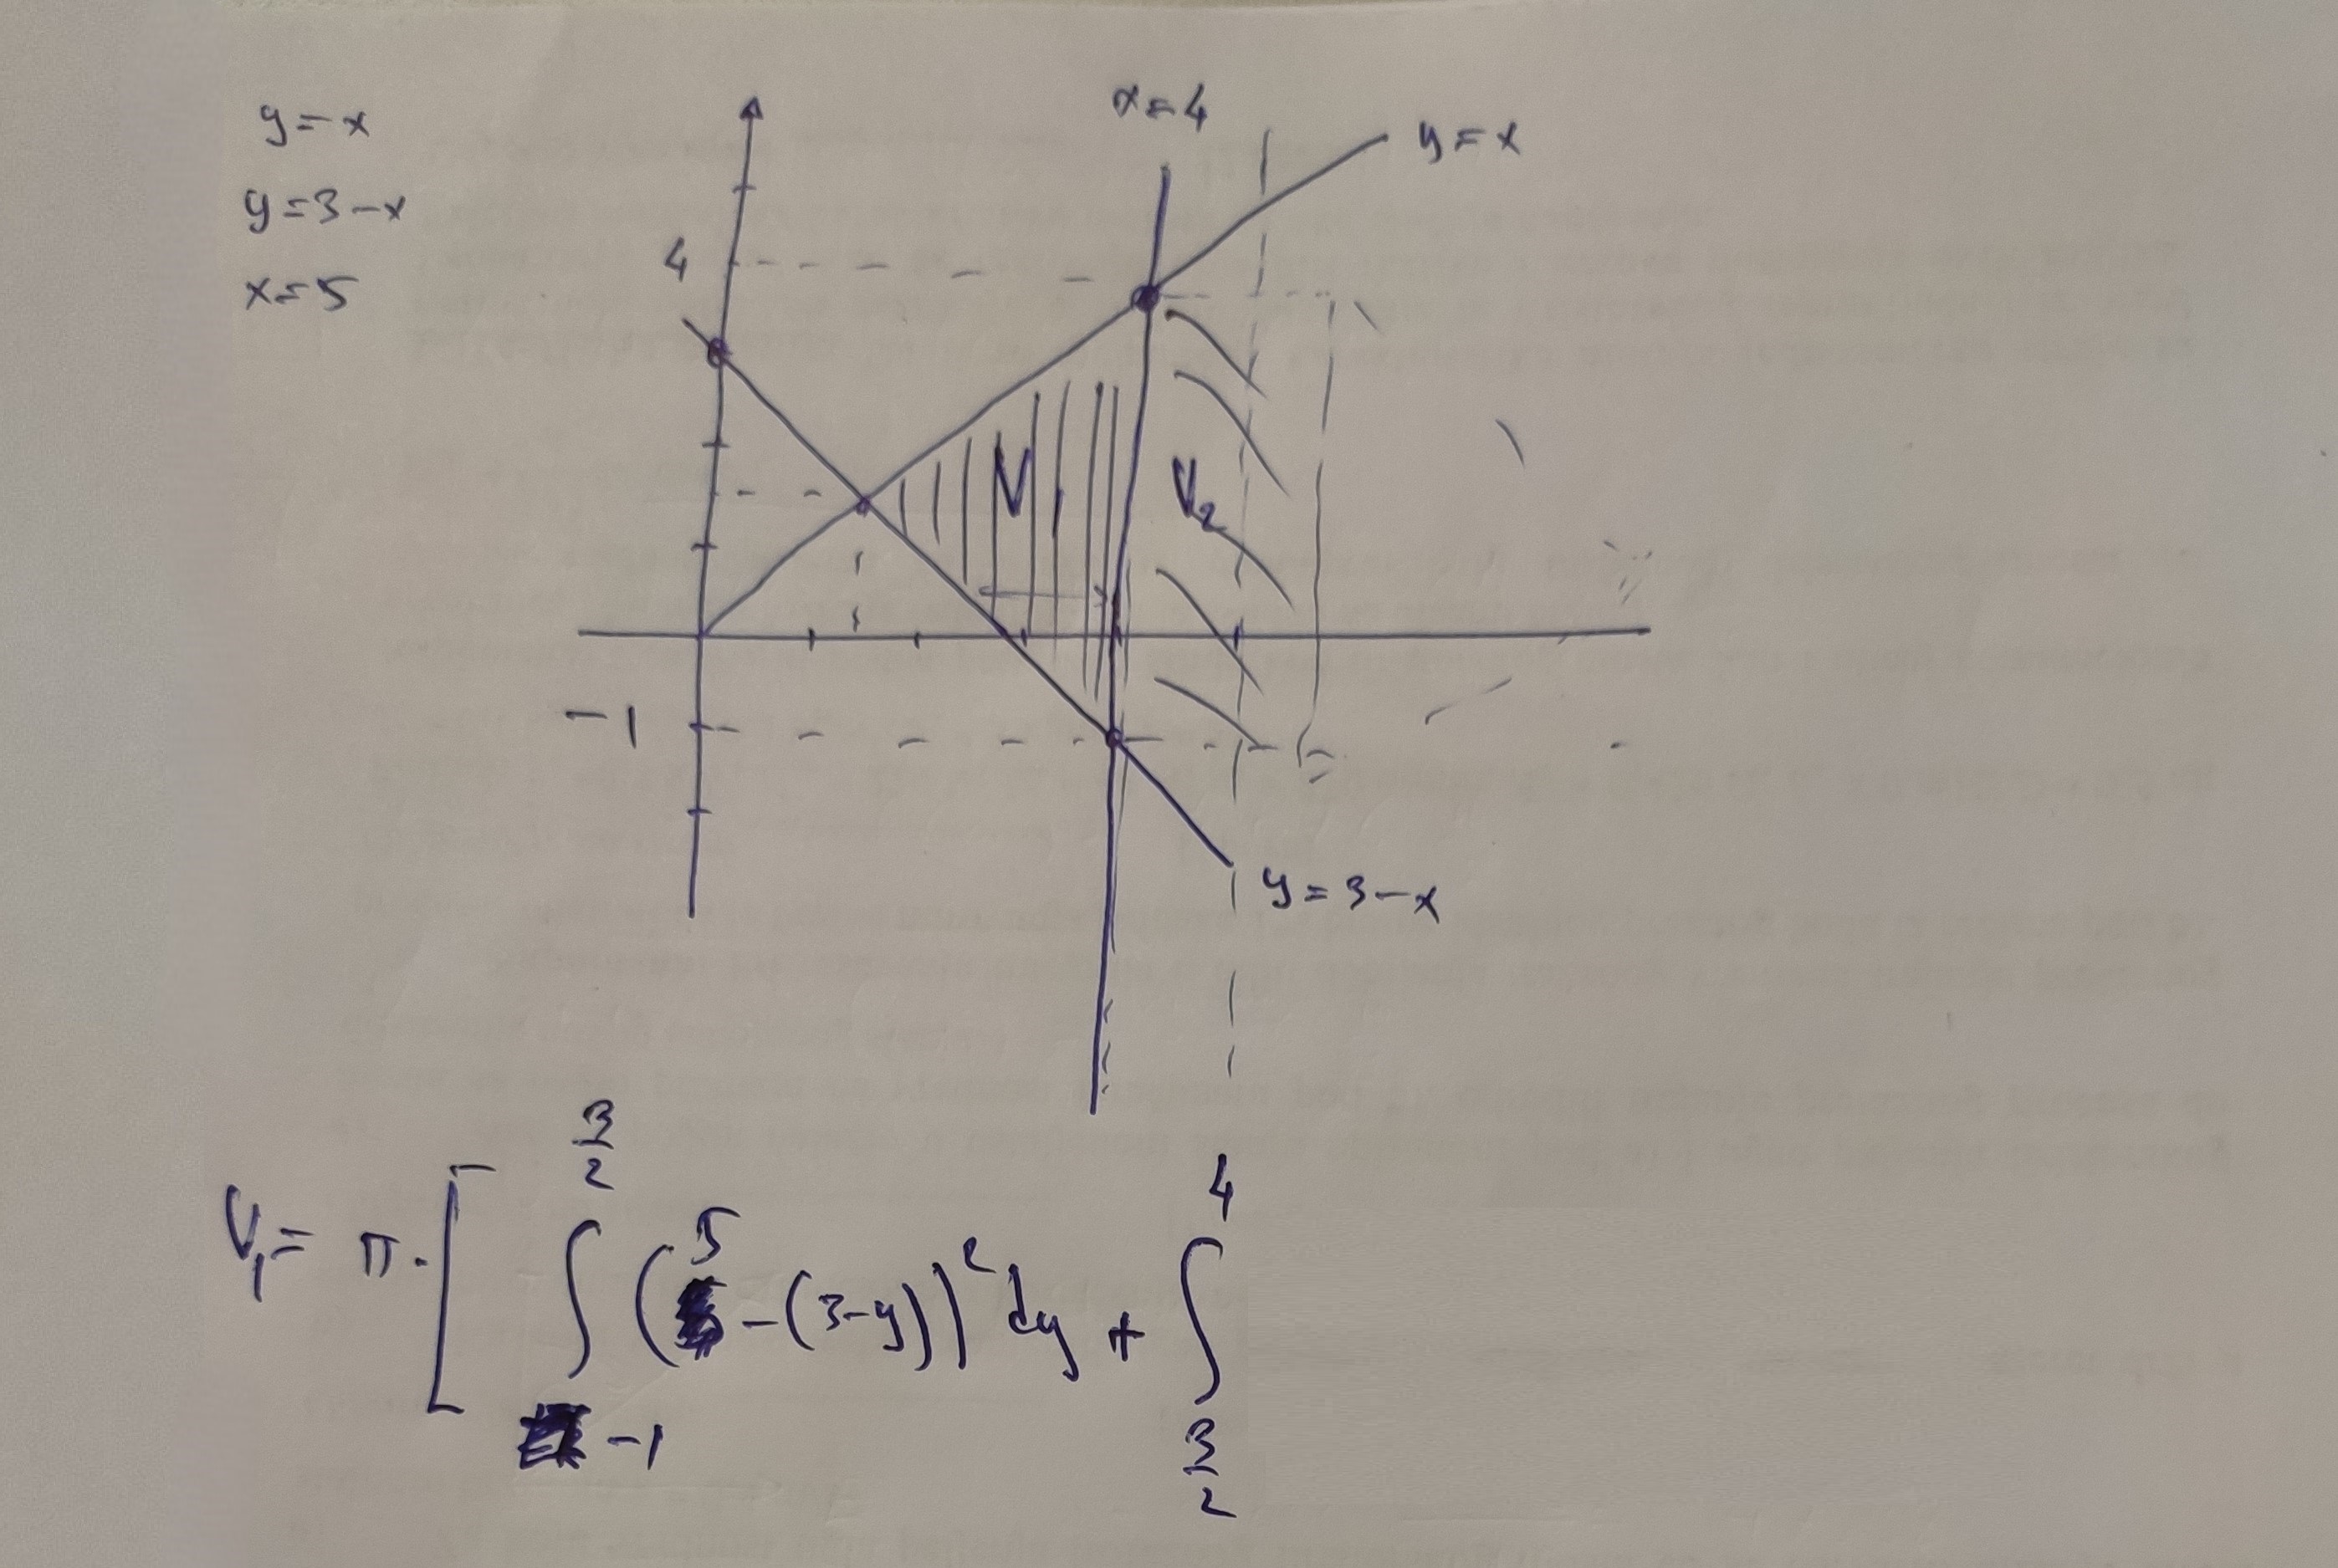 y=x
y=3-x
x=5
x=4
y=x
4
V1
V2
-1
y=3-x
V1 = π·[ ∫_{-1}^{3/2} (5-(3-y))² dy + ∫_{3/2}^{4}